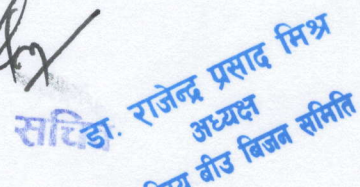 डा. राजेन्द्र प्रसाद मिश्र
अध्यक्ष
बीउ बिजन समिति